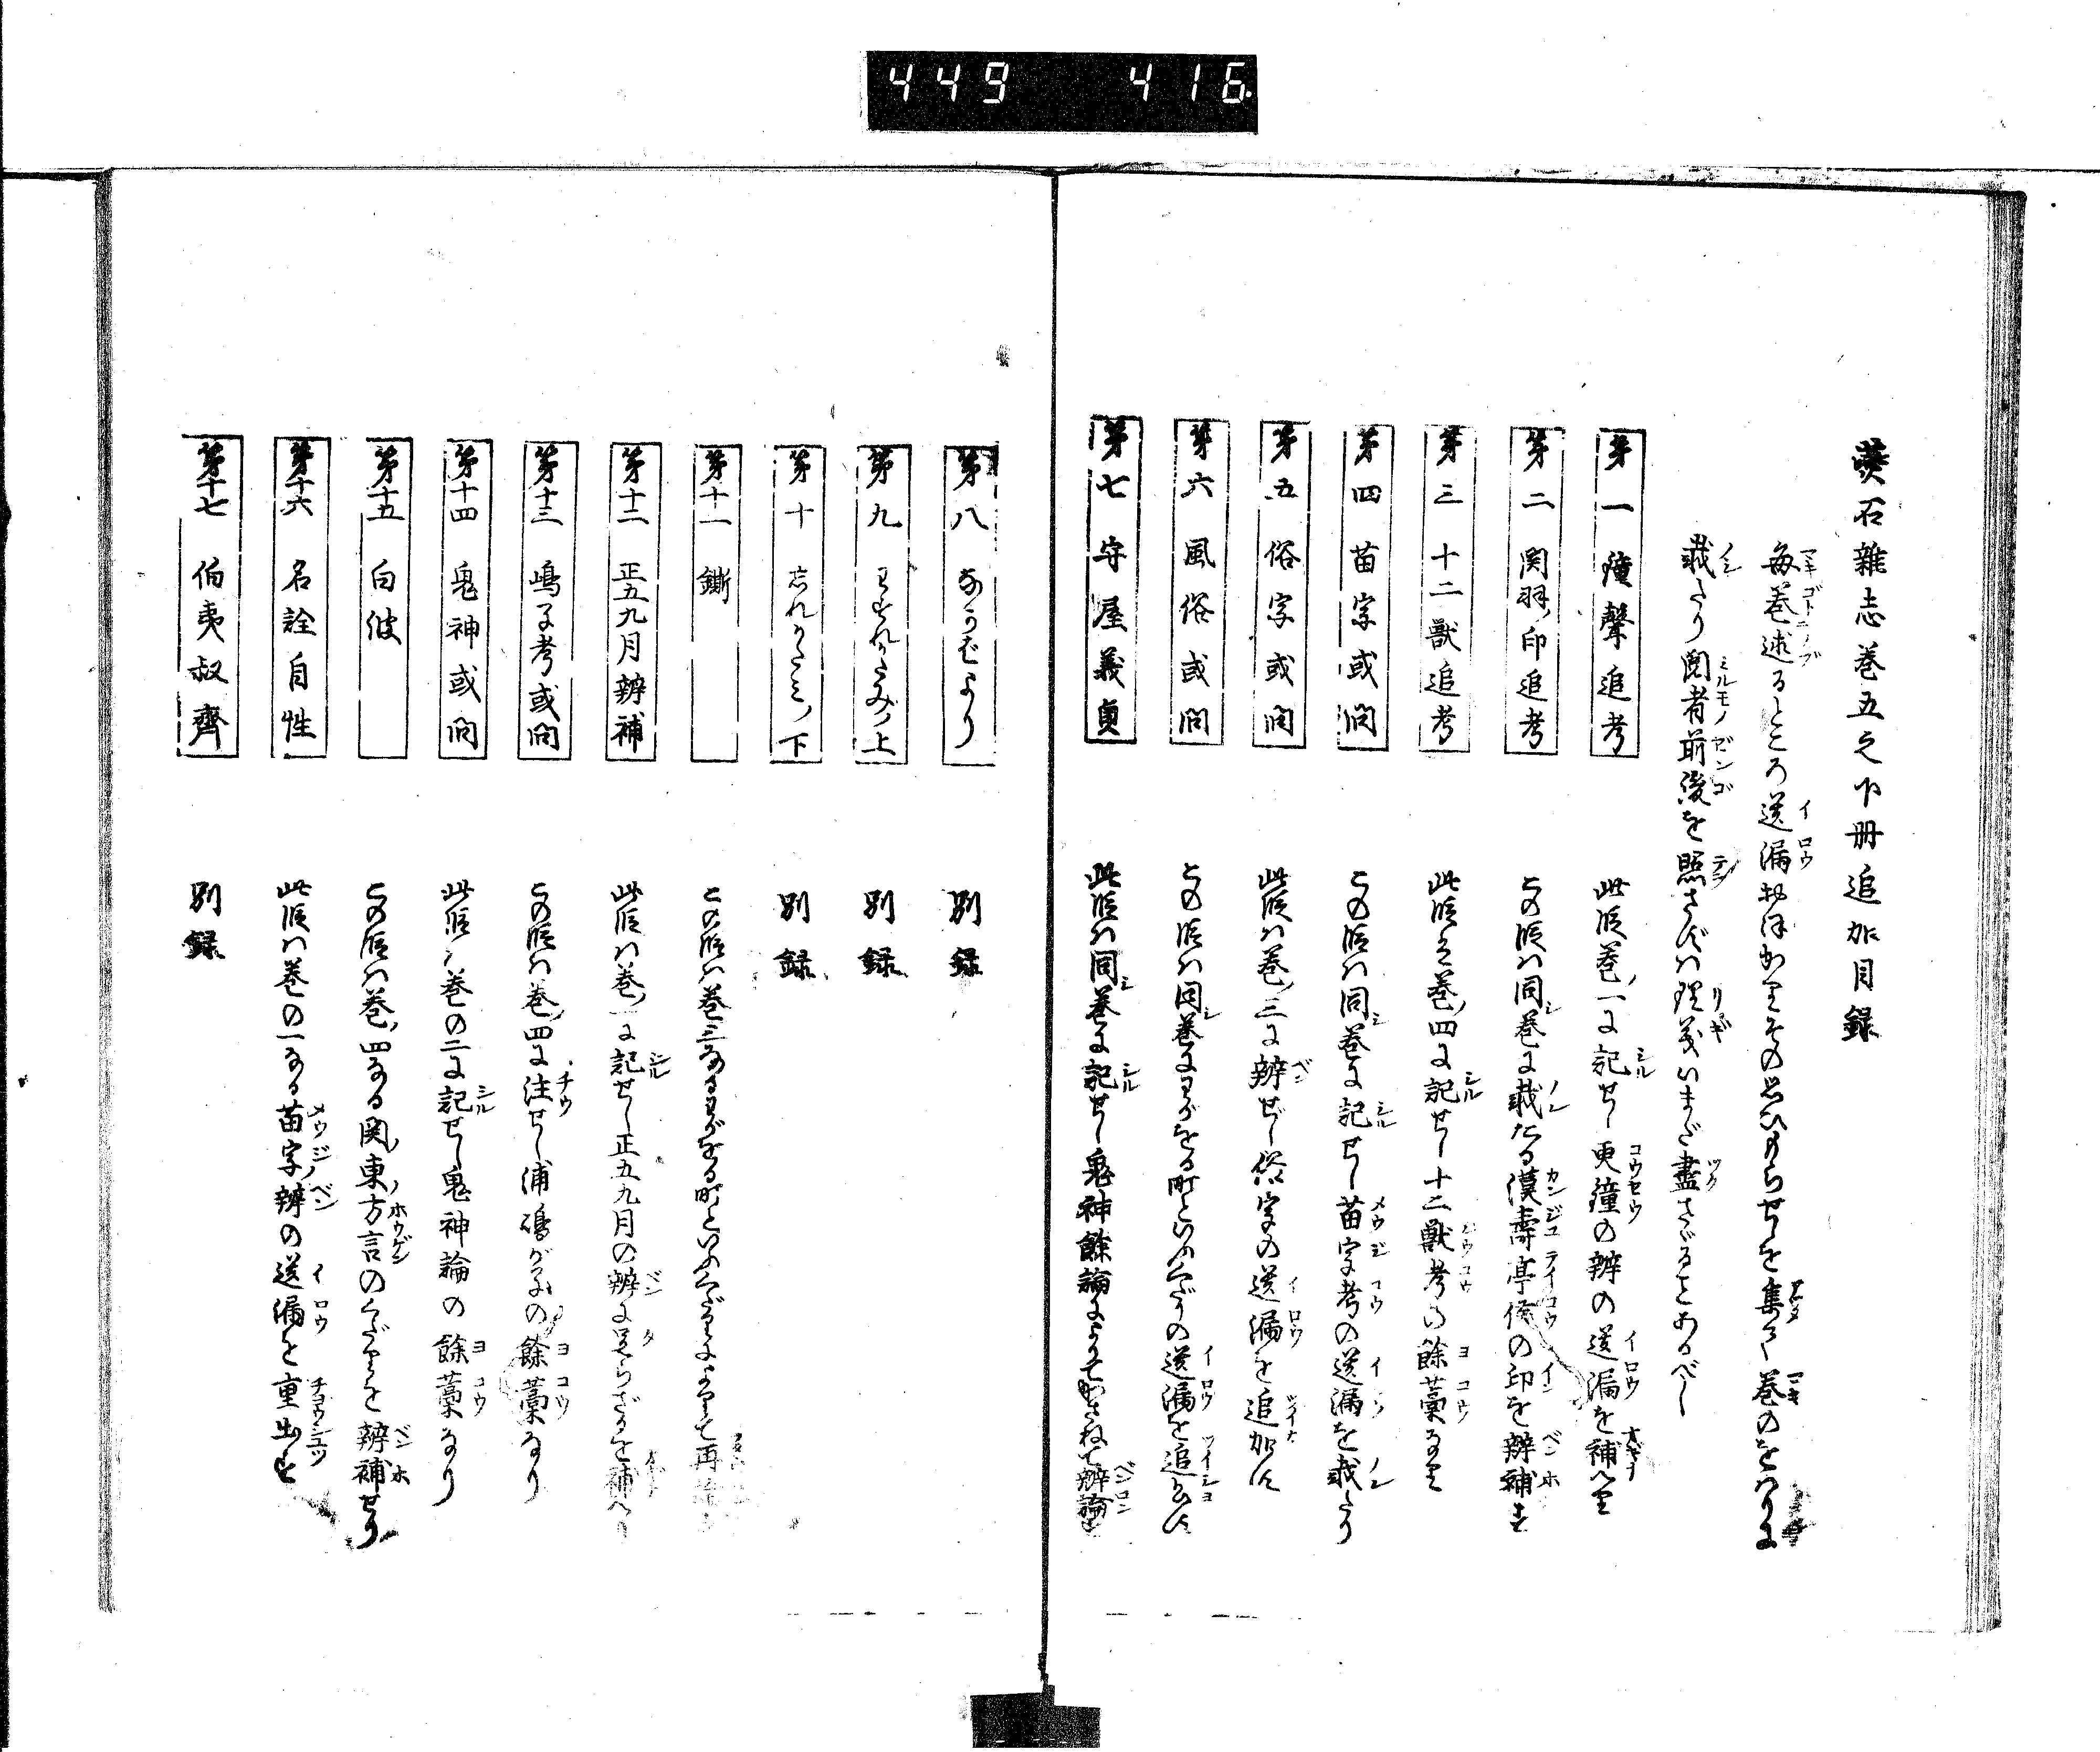 449 416.
蕡石雜志卷五之下冊追加目録
毎巻述るところ遺漏おほかりその思ひもらせしを集て巻のをはりに
載たり閲者前後を照さずは理義いまだ盡さゞることあるべし
第一 鐘聲追考 此段巻ノ一に記せし更鐘の辨の遺漏を補へり
第二 関羽ノ印追考 この段は同シ巻に載たる漢壽亭侯の印を辨補す
第三 十二獣追考 此段も巻ノ四に記せし十二獣考の餘藁なり
第四 苗字或問 この段は同シ巻に記せし苗字考の遺漏を載たり
第五 俗字或問 此段は巻ノ三に辨ぜし俗字の遺漏を追加す
第六 風俗或問 この段は同シ巻にわがをる町といふくだりの遺漏を追書す
第七 守屋義貞 此段は同シ巻に記せし鬼神餘論によりてかさねて辨論す
第八 ながむより 別録
第九 わすれがたみノ上 別録
第十 忘れがたミノ下 別録
第十一 鐁 この段は巻三なるわがをる町といふくだりによりて再
第十二 正五九月辨補 此段は巻ノ一に記せし正五九月の辨に足らざるを補へり
第十三 嶋子考或問 この段は巻ノ四に注せし浦嶋が子の餘藁なり
第十四 鬼神或問 此段ハ巻の二に記せし鬼神論の餘藁なり
第十五 白波 この段は巻ノ四なる関ノ東ノ方言のくだりを辨補せり
第十六 名詮自性 此段は巻の一なる苗字ノ辨の遺漏を重出す
第十七 伯夷叔齊 別録